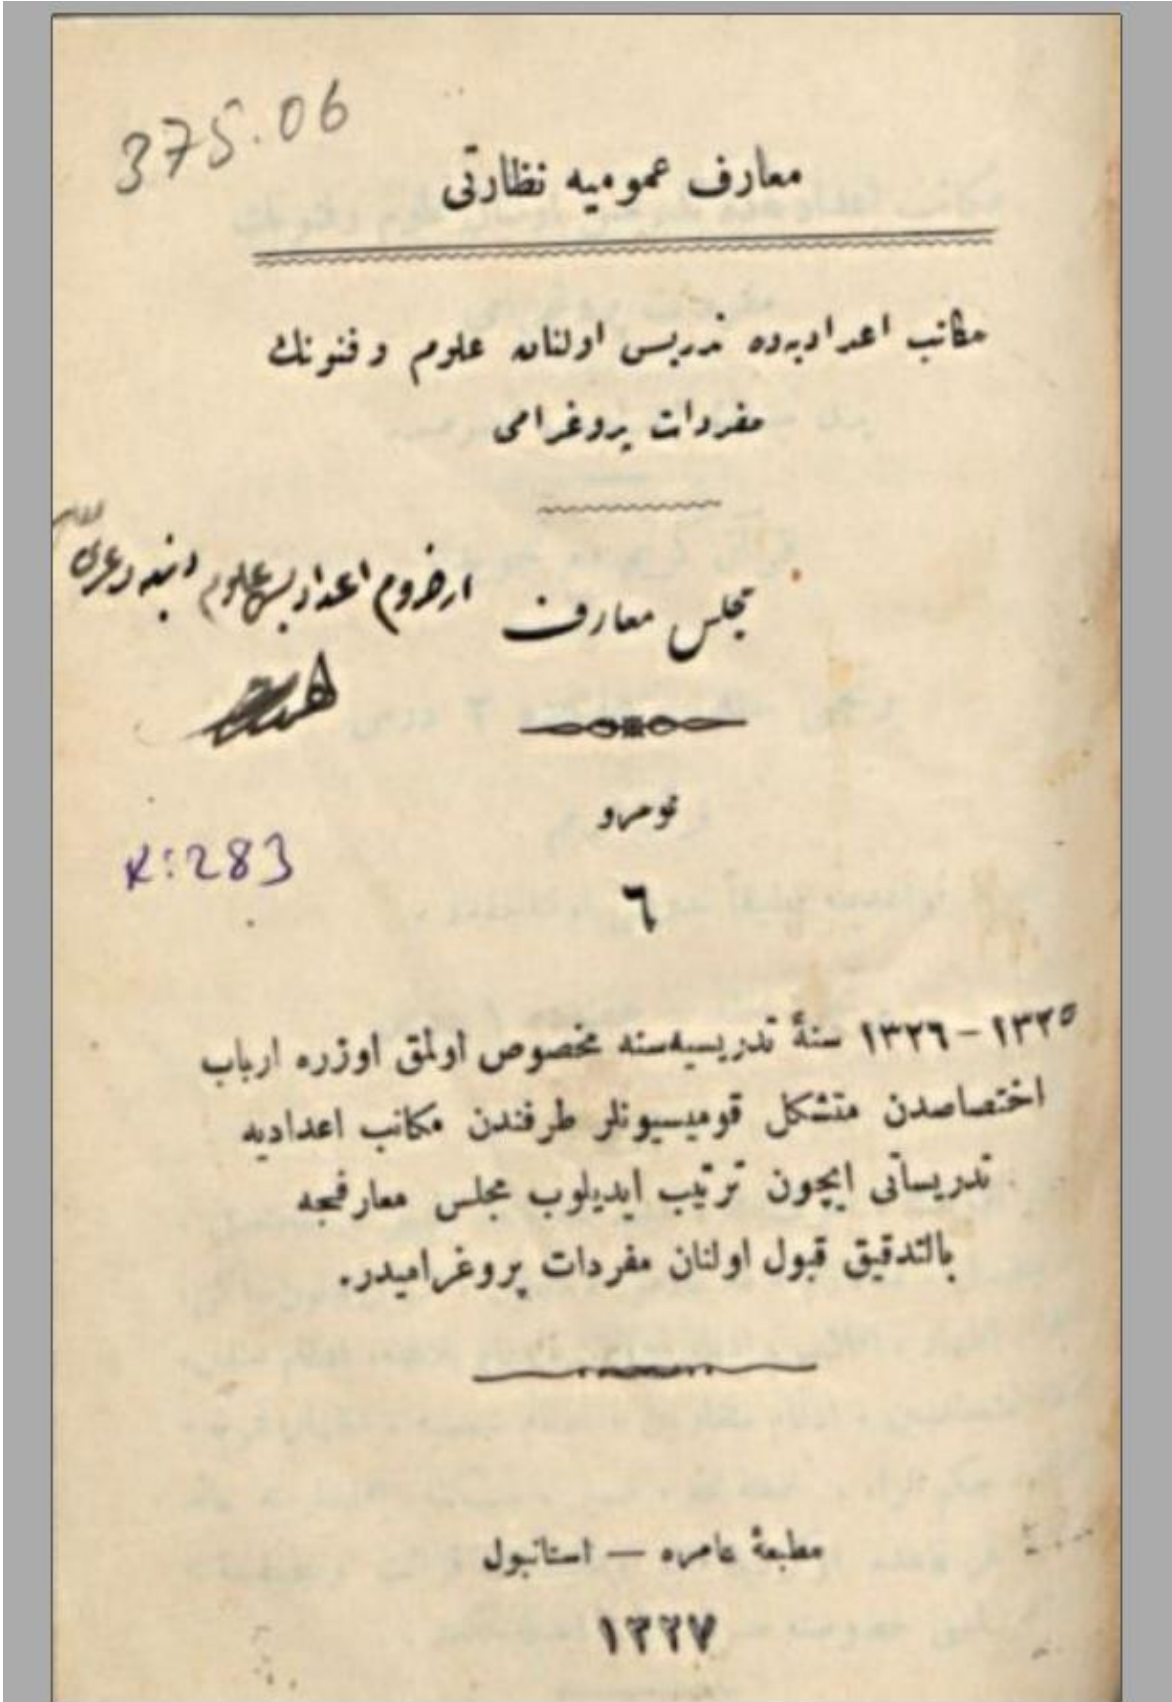 375.06
معارف عمومیه نظارتی
مکاتب اعدادیه‌ده تدریس اولنان علوم و فنونك
مفردات پروغرامی
ارضروم اعدادیسی علوم دینیه و عربی
مجلس معارف
نومرو
٦
K:283
١٣٢٥ – ١٣٢٦ سنهٔ تدریسیه‌سنه مخصوص اولمق اوزره ارباب
اختصاصدن متشکل قومیسیونلر طرفندن مکاتب اعدادیه
تدریساتی ایچون ترتیب ایدیلوب مجلس معارفجه
بالتدقیق قبول اولنان مفردات پروغرامیدر.
مطبعهٔ عامره — استانبول
١٣٢٧